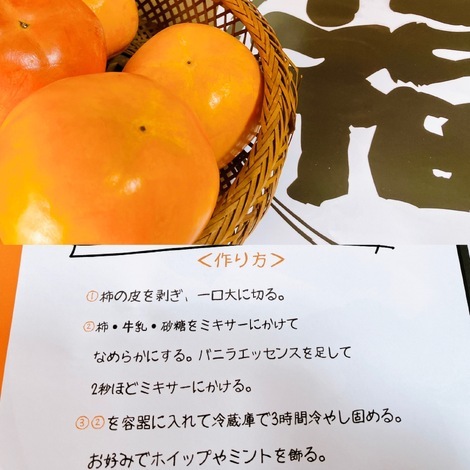 <作り方>
①柿の皮を剥ぎ、一口大に切る。
②柿・牛乳・砂糖をミキサーにかけて
なめらかにする。バニラエッセンスを足して
2秒ほどミキサーにかける。
③②を容器に入れて冷蔵庫で3時間冷やし固める。
お好みでホイップやミントを飾る。